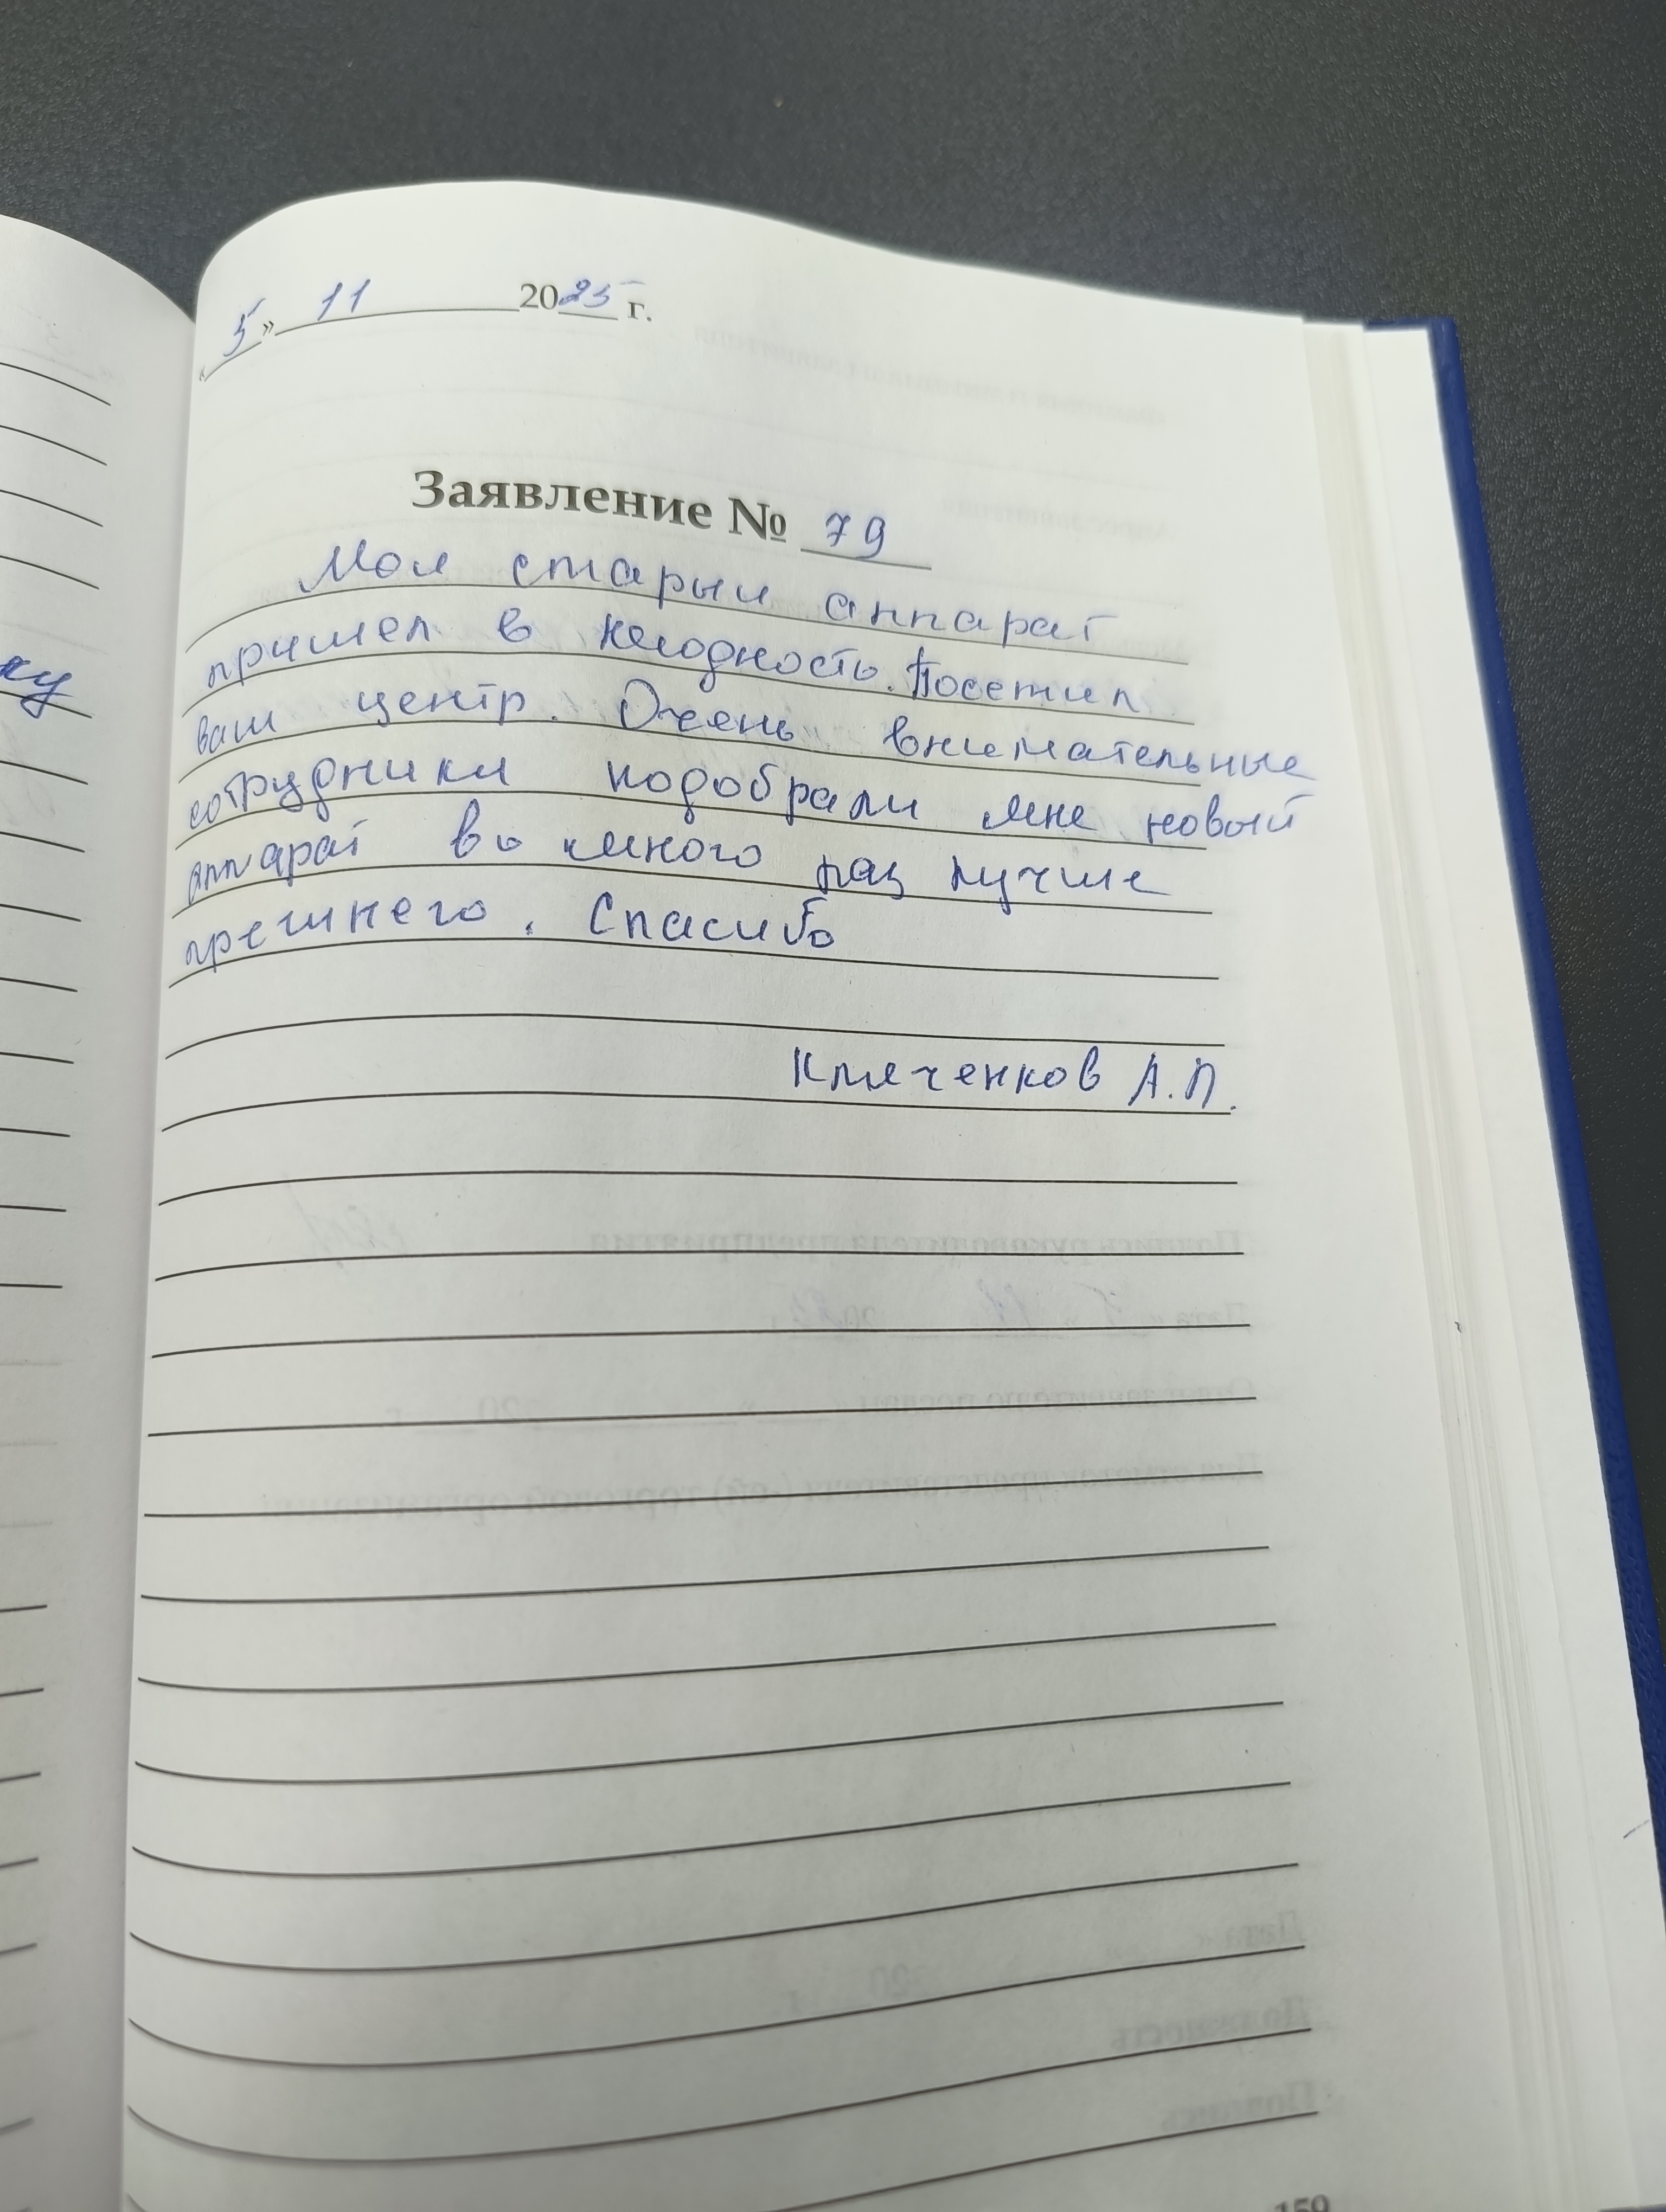 ку
«5» 11 2025 г.
Заявление № 79
Мой старый аппарат
пришел в негодность. Посетил
ваш центр. Очень внимательные
сотрудники подобрали мне новый
аппарат во много раз лучше
прежнего. Спасибо
Ключенков А.П.
159